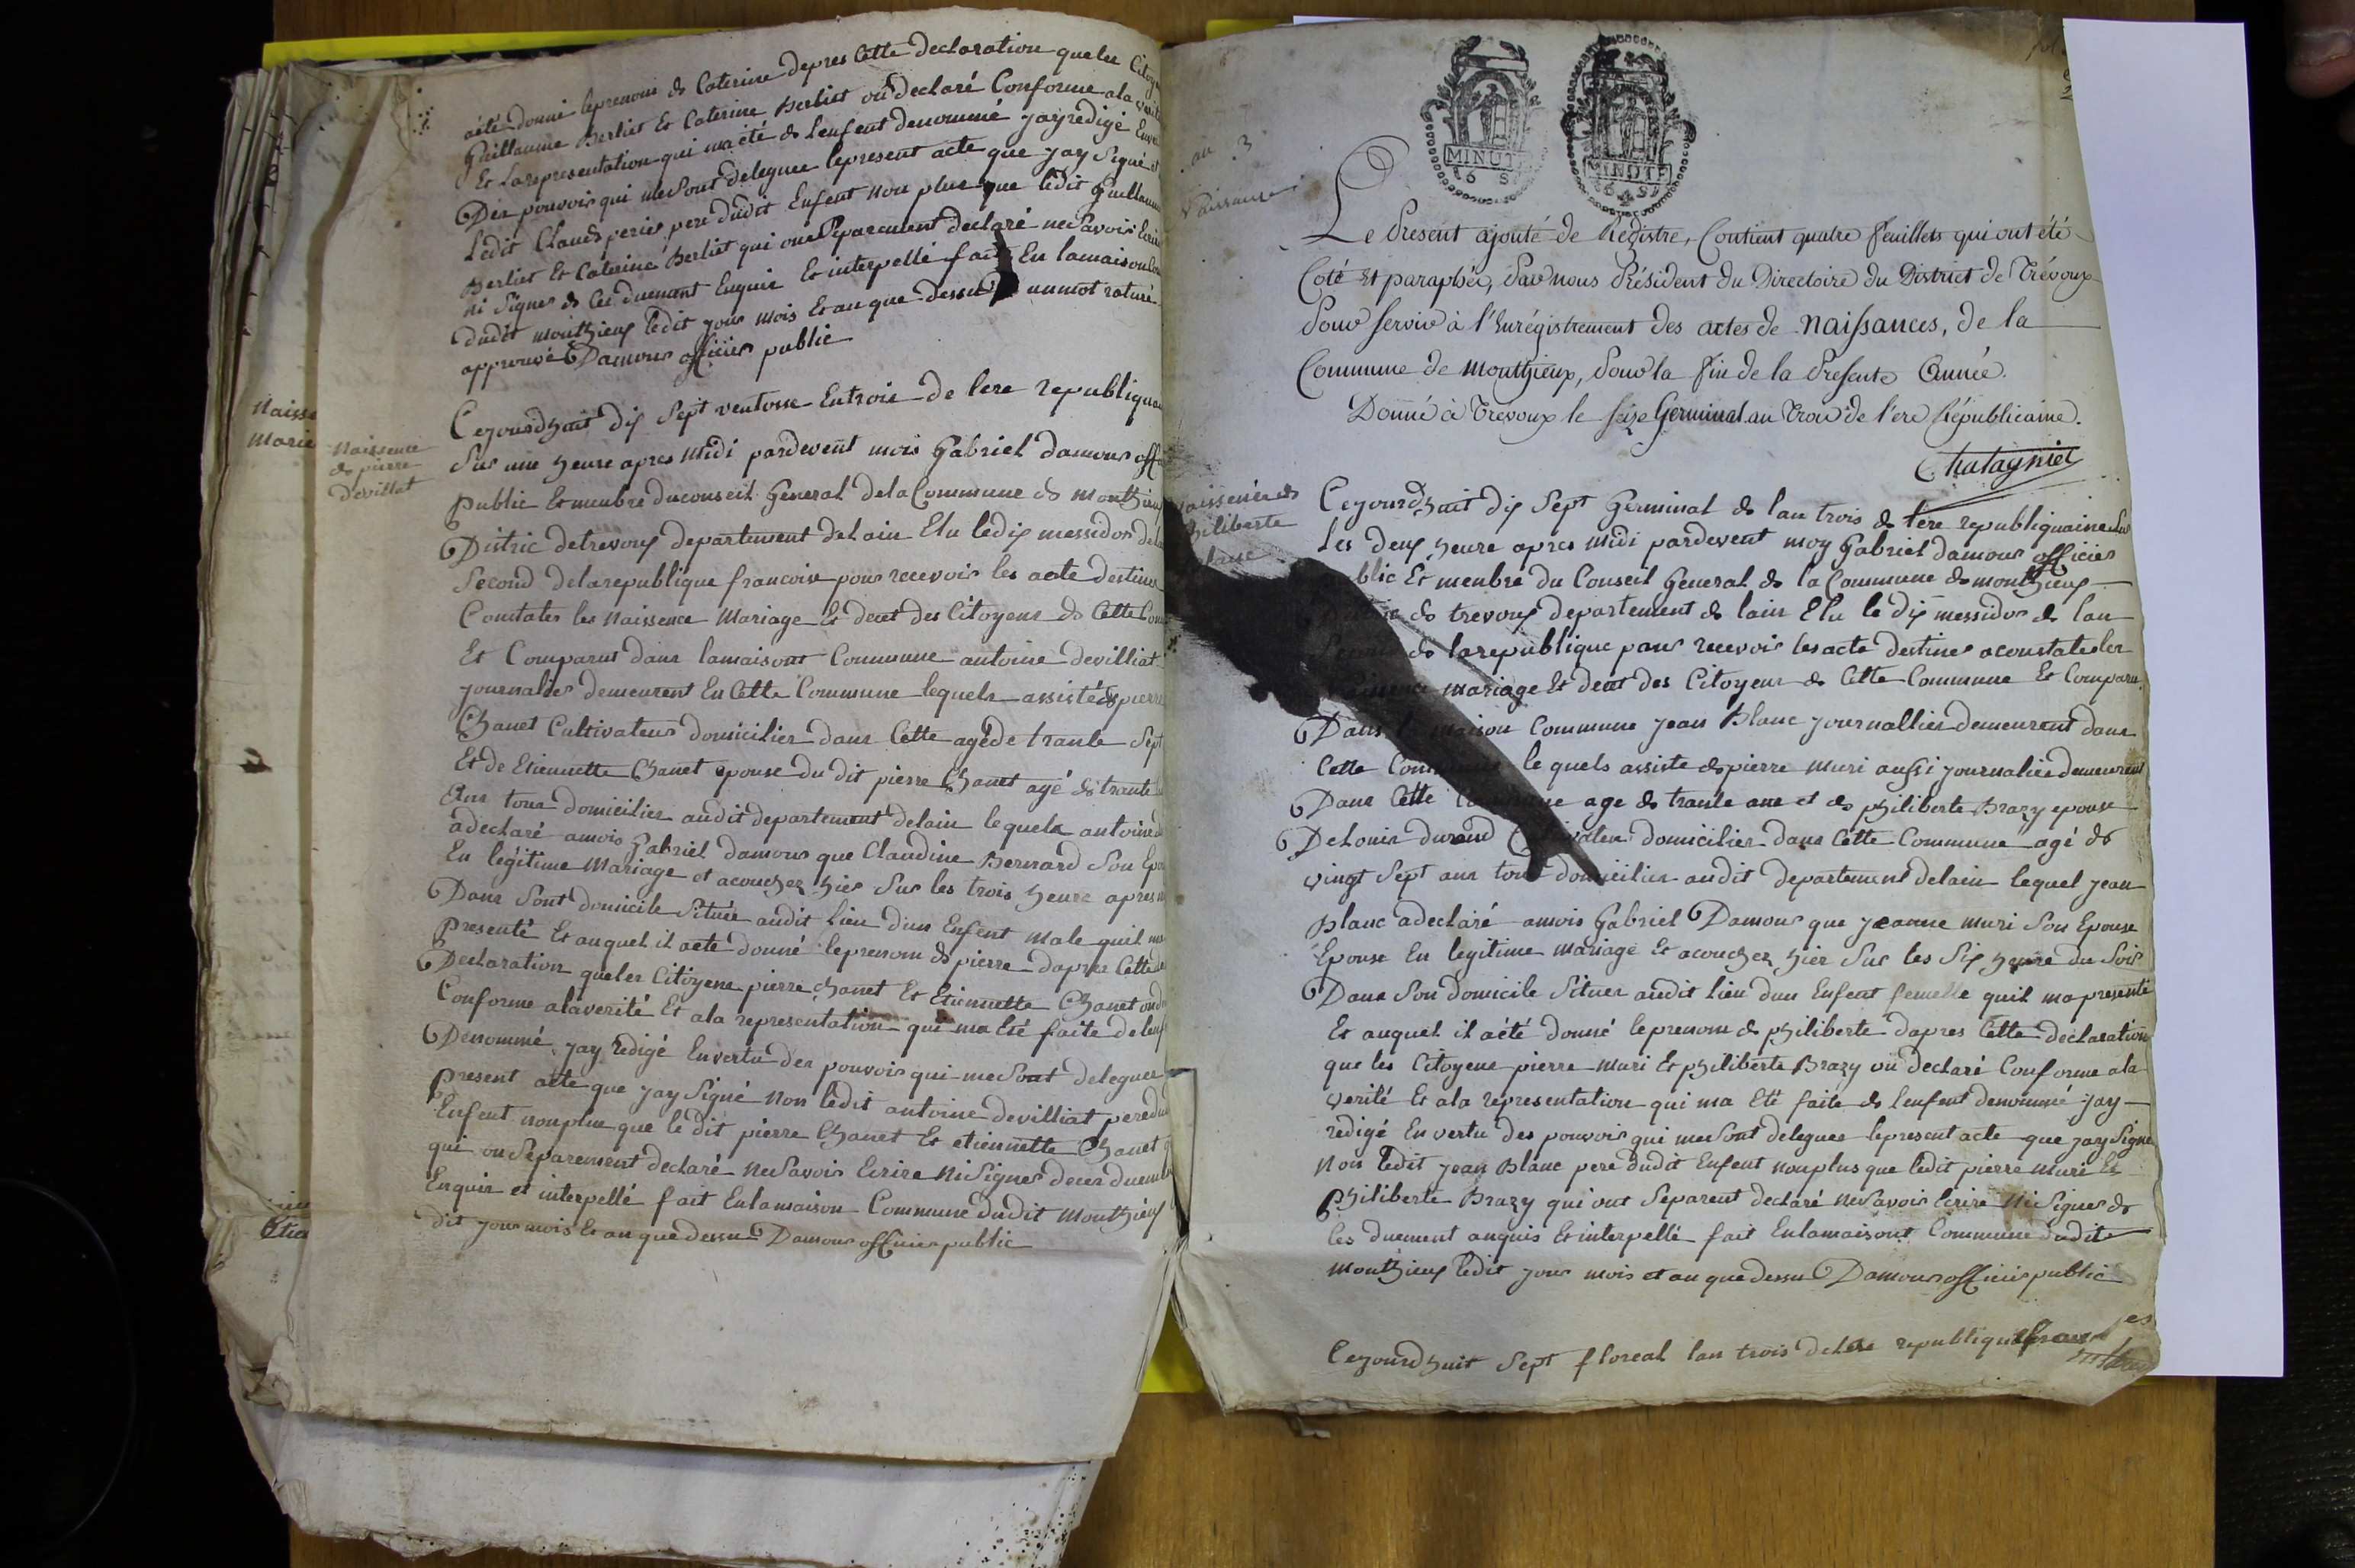 aété donné leprenom de Caterine depres Cette declaration queles Citoye
Guillaume Berliet Et Caterine Berliet on declaré Conforme ala verité
Et Larepresentation qui ma été de lenfent denommé jay redigé Enver
Des pouvoir qui me Sont deleguee lepresent acte que jay Signé et
Ledit Claude perier pere dudit Enfent non plus que ledit guillaume
Berliet Et Caterine Berliet qui on Separement declaré ne Savoir Ecrire
ni Signer de Ces duement Enquir Et interpellé fait En lamaison
dudit monthieux ledit jour mois Et an que dessu un mot raturé
approuvé Damour officier public
Naisse
Marie
Naissence
de pierre
devillat
Cejourdhuit dix Sept ventosse Entrois de lere republiquai
Sur une heure apres Midi pardevent mois Gabriel damour offi
public Et menbre duconseil General dela Commune de Monthieux
Distric detrevoux departement delain Elu ledix messidor de
Second delarepublique francoise pour recevoir les acte destiner
Constater les Naissence Mariage Et decet des Citoyens de Cette Com
Et Comparut dans lamaisont Commune antoine devilliat
journalier demeurent En Cette Commune lequels assisté de pierre
Chanet Cultivateur domicilier dans Cette agé de trante Sept
Et de Etiennette Chanet epouse du dit pierre Chanet agé de trante
Ans tous domicilier audit departement delain lequels antoine d
adeclaré amois Gabriel damour que Claudine Bernard Son Epou
En legitime Mariage et acouchez hier Sur les trois heure apres m
Dans Sont domicile Situér audit lieu dun Enfent male quil ma
presenté Et auquel il aete donné leprenom de pierre dapres Cette
Declaration queles Citoyens pierre Chanet Et Etiennette Chanet ond
Conforme alaverité Et ala representation qui ma Eté faite de lenf
Denommé jay redigé Envertu des pouvoir qui me Sont deleguee
present acte que jay Signé Non ledit antoine devilliat pere dud
Enfent nonplus que le dit pierre Chanet Et etiennette Chanet
qui on Séparement declaré ne Savoir Ecrire Ni Signer deces duement
Enquir et interpellé fait Enlamaison Commune dudit Monthieux
dit jour mois Et an que dessu Damour officier public
Etie
an 3
Naissance
MINUTE
MINUTE
Le Présent ajouté de Registre, Contient quatre feuillets qui ont été
Coté Et paraphés, Par nous Président du Directoire du District de Trévoux
Pour Servir à l'Enrégistrement des actes de Naissances, de la
Commune de Monthieux, Pour la fin de la Presente Année.
Donné à Trevoux le Seize Germinal an Trois de l'ere Républicaine.
Chatagnier
Naissence de
philiberte
blanc
Cejourdhuit dix Sept Germinal de lan trois de lere republiquaine Sur
Les deux heure apres Midi pardevent moy Gabriel damour officier
public Et menbre du Conseil General de la Commune de monthieux
Distric de trevoux departement de lain Elu le dix messidor de lan
Second de larepublique pour recevoir les acte destiner aconstater les
Naissence mariage Et decet des Citoyens de Cette Commune Et Comparu
Dans la maison Commune jean Blanc journallier demeurent dans
Cette Commune le quels assiste de pierre muri aussi journalier demeurent
Dans Cette Commune age de trante ans et de philiberte Brazy epouse
De Louis durand Cultivateur domicilier dans Cette Commune agé de
vingt Sept ans tous domicilier audit departement delain lequel jean
Blanc adeclaré amois Gabriel Damour que jeanne muri Son Epouse
Epouse En legitime mariage Et acouchez hier Sur les Six heure du Soir
Dans Son domicile Situer audit lieu dun Enfent femelle quil ma presenté
Et auquel il aété donné leprenom de philiberte dapres Cette declaration
que les Citoyens pierre muri Et philiberte Brazy on declaré Conforme ala
verité Et ala representation qui ma Eté faite de lenfent denommé jay
redigé En vertu des pouvoir qui me Sont deleguee lepresent acte que jay Signé
Non ledit jean Blanc pere dudit Enfent nonplus que ledit pierre muri Et
philiberte Brazy qui ont Separent declaré ne Savoir Ecrire Ni Signer de
Ces duement anquis Et interpellé fait Enlamaisont Commune dudit
Monthieux ledit jour mois et an que dessu Damour officier public
Cejourdhuit Sept floreal lan trois delere